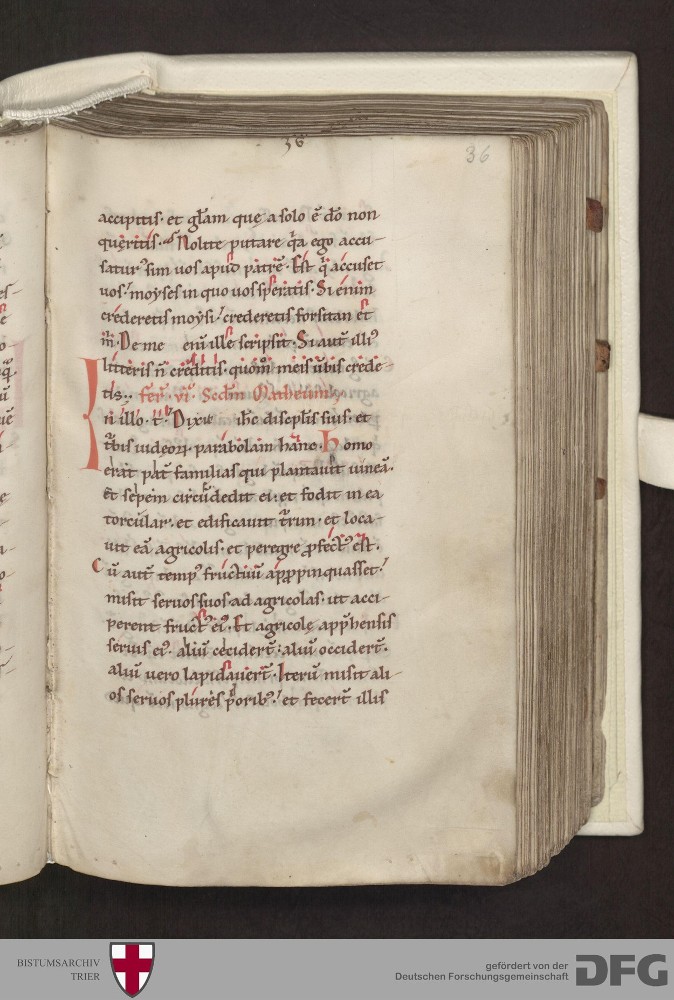 36
36
accipitis. et gl̄am quę a solo ē dō non
queritis. Nolite putare q̄a ego accu-
satur᾽ sim uos apud patrē. Est q̄ accuset
uos. moyses in quo uos speratis. Si enim
crederetis moysi. crederetis forsitan et
m̄. De me enī ille scripsit. Si aut̄ illi᾽
litteris n̄ creditis. quom̄ meis ūbis crede-
tis. fer̄. vi. Secdm̄ Matheum.
In illo. t̄. Dixit ihc̄ discipl̄is suis. et
t̄bis iudeoꝝ. parabolam hanc. Homo
erat pat̄ familias qui plantauit uineā.
Et sepem circūdedit ei. et fodit in ea
torcular. et edificauit t̄rim. et loca-
uit eā agricolis. et peregre ꝓfect᾽ est.
Cū aut̄ temp᾽ fructuū appropinquasset.
misit seruos suos ad agricolas. ut acci-
perent fruct᾽ ei᾽. Et agricolę app̄hensis
seruis ei᾽. aliū cecidert̄. aliū occidert̄.
aliū uero lapidauert̄. Iterū misit ali-
os seruos plures p̄orib᾽. et fecert̄ illis
BISTUMSARCHIV
TRIER
gefördert von der
Deutschen Forschungsgemeinschaft
DFG